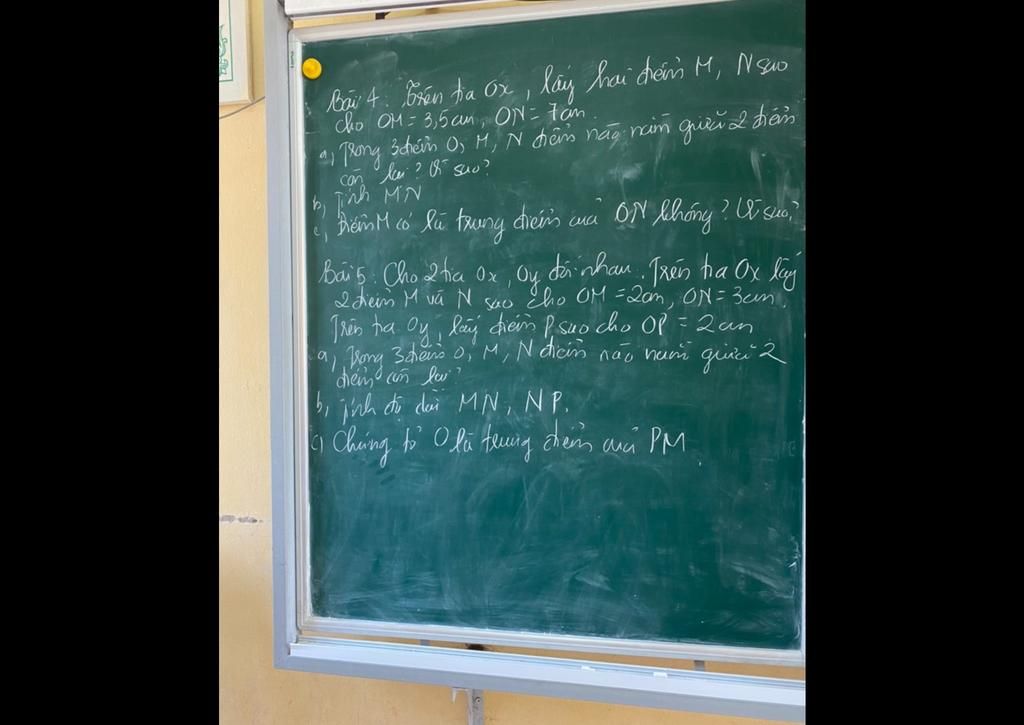 Bài 4: Trên tia Ox, lấy hai điểm M, N sao
cho OM = 3,5cm, ON = 7cm.
a, Trong 3 điểm O, M, N điểm nào nằm giữa 2 điểm
còn lại? Vì sao?
b, Tính MN
c, Điểm M có là trung điểm của ON không? Vì sao?
Bài 5: Cho 2 tia Ox, Oy đối nhau. Trên tia Ox lấy
2 điểm M và N sao cho OM = 2cm, ON = 3cm.
Trên tia Oy, lấy điểm P sao cho OP = 2cm
a, Trong 3 điểm O, M, N điểm nào nằm giữa 2
điểm còn lại?
b, Tính độ dài MN, NP.
c, Chứng tỏ O là trung điểm của PM.